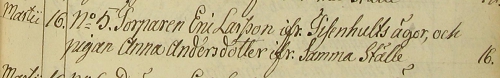 Martii 16. No 5. Torparen Eric Larsson ifr. Tisenhults ägor, och
pigan Anna Andersdotter ifr. Samma Ställe 16.